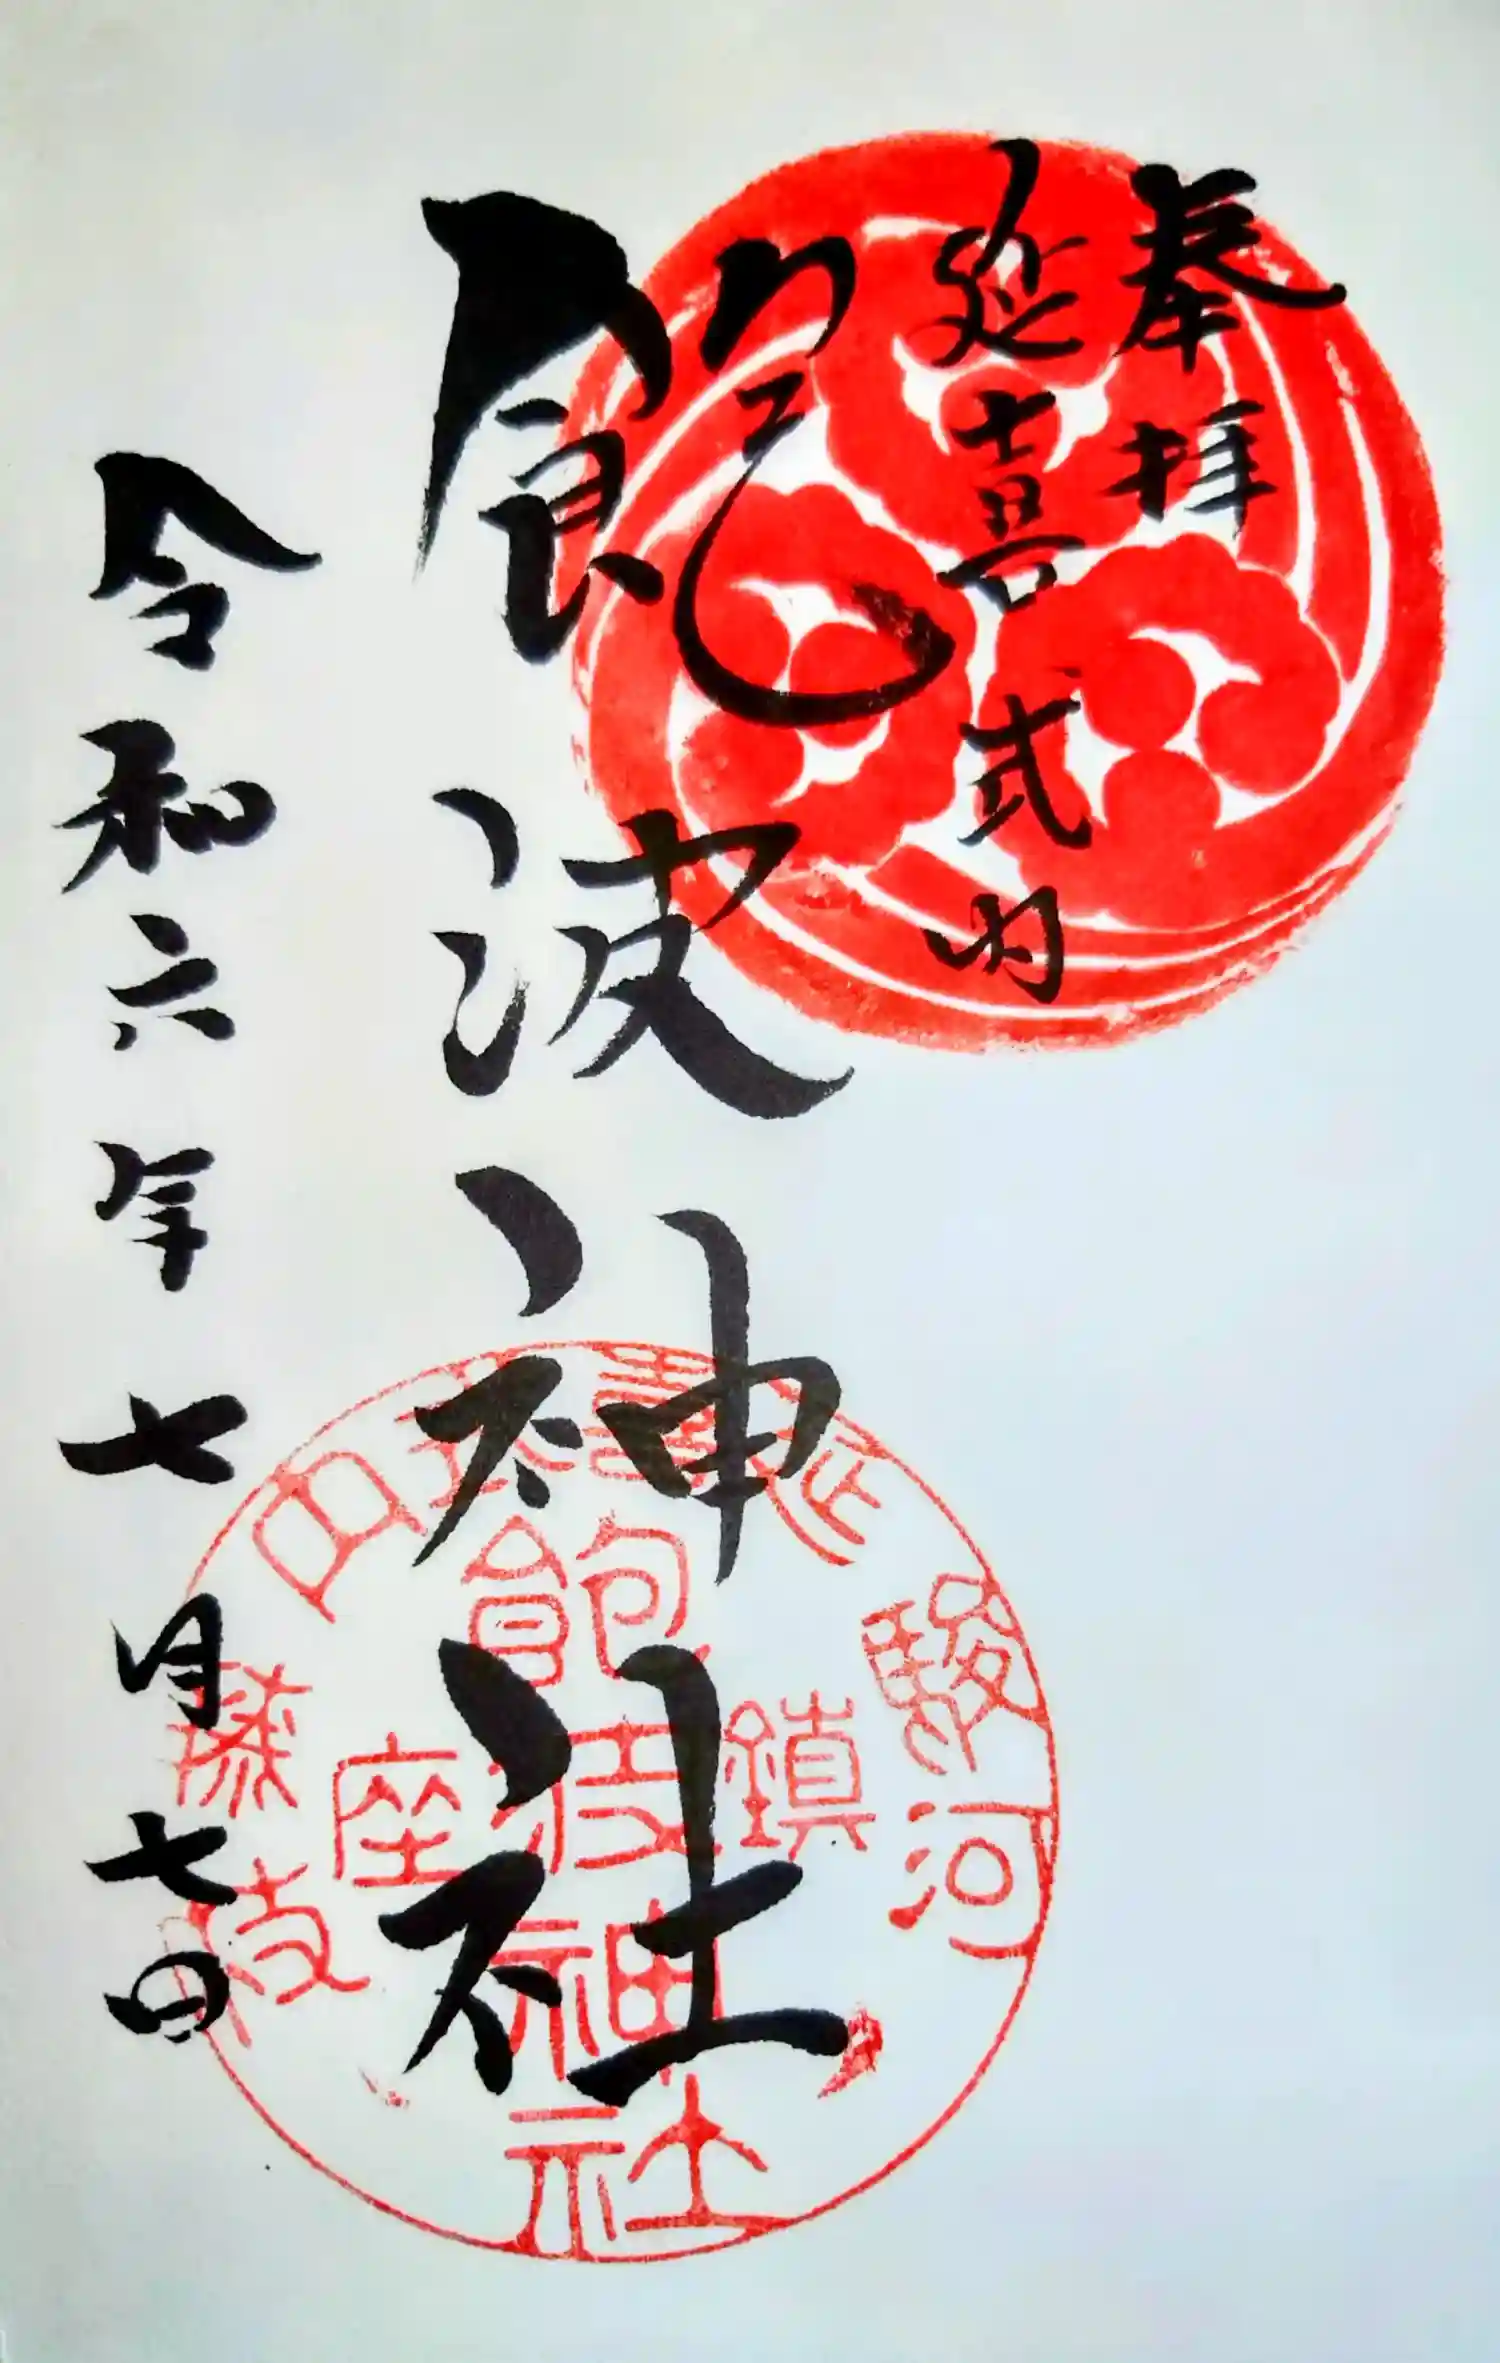 奉拝
延喜式内
飽波神社
令和六年七月七日
駿河
延喜式内
藤枝
鎮座
飽波神社